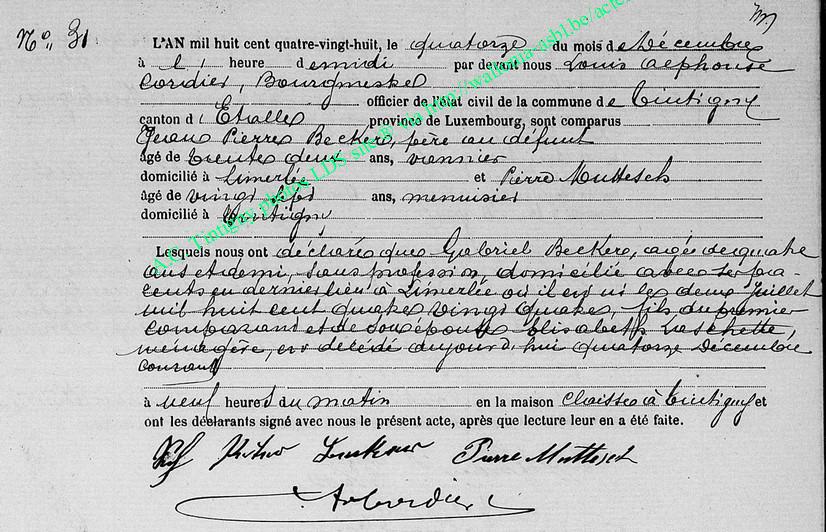 N°. 31
L'AN mil huit cent quatre-vingt-huit, le quatorze du mois de Décembre
à l' heure de midi par devant nous Louis Alphonse
Cordier, Bourgmestre
officier de l'état civil de la commune de Tintigny
canton d' Etalle province de Luxembourg, sont comparus
Jean Pierre Becker, père au défunt
âgé de trente deux ans, vannier
domicilié à Limerlé et Pierre Muttesch
âgé de vingt sept ans, menuisier
domicilié à Tintigny
Lesquels nous ont déclaré que Gabriel Becker, agé de quatre
ans et demi, sans profession, domicilié avec ses pa-
rents en dernier lieu à Limerlé où il est né le deux Juillet
mil huit cent quatre vingt quatre, fils du premier
comparant et de son épouse Elisabeth Laschette,
ménagère, est décédé aujourd'hui quatorze Décembre
courant
à neuf heures du matin en la maison Claisse à Tintigny et
ont les déclarants signé avec nous le présent acte, après que lecture leur en a été faite.
Pierre Muttesch
A. Cordier
A.G. Tintigny photos LDS site@ via http://wallonia-asbl.be/acte